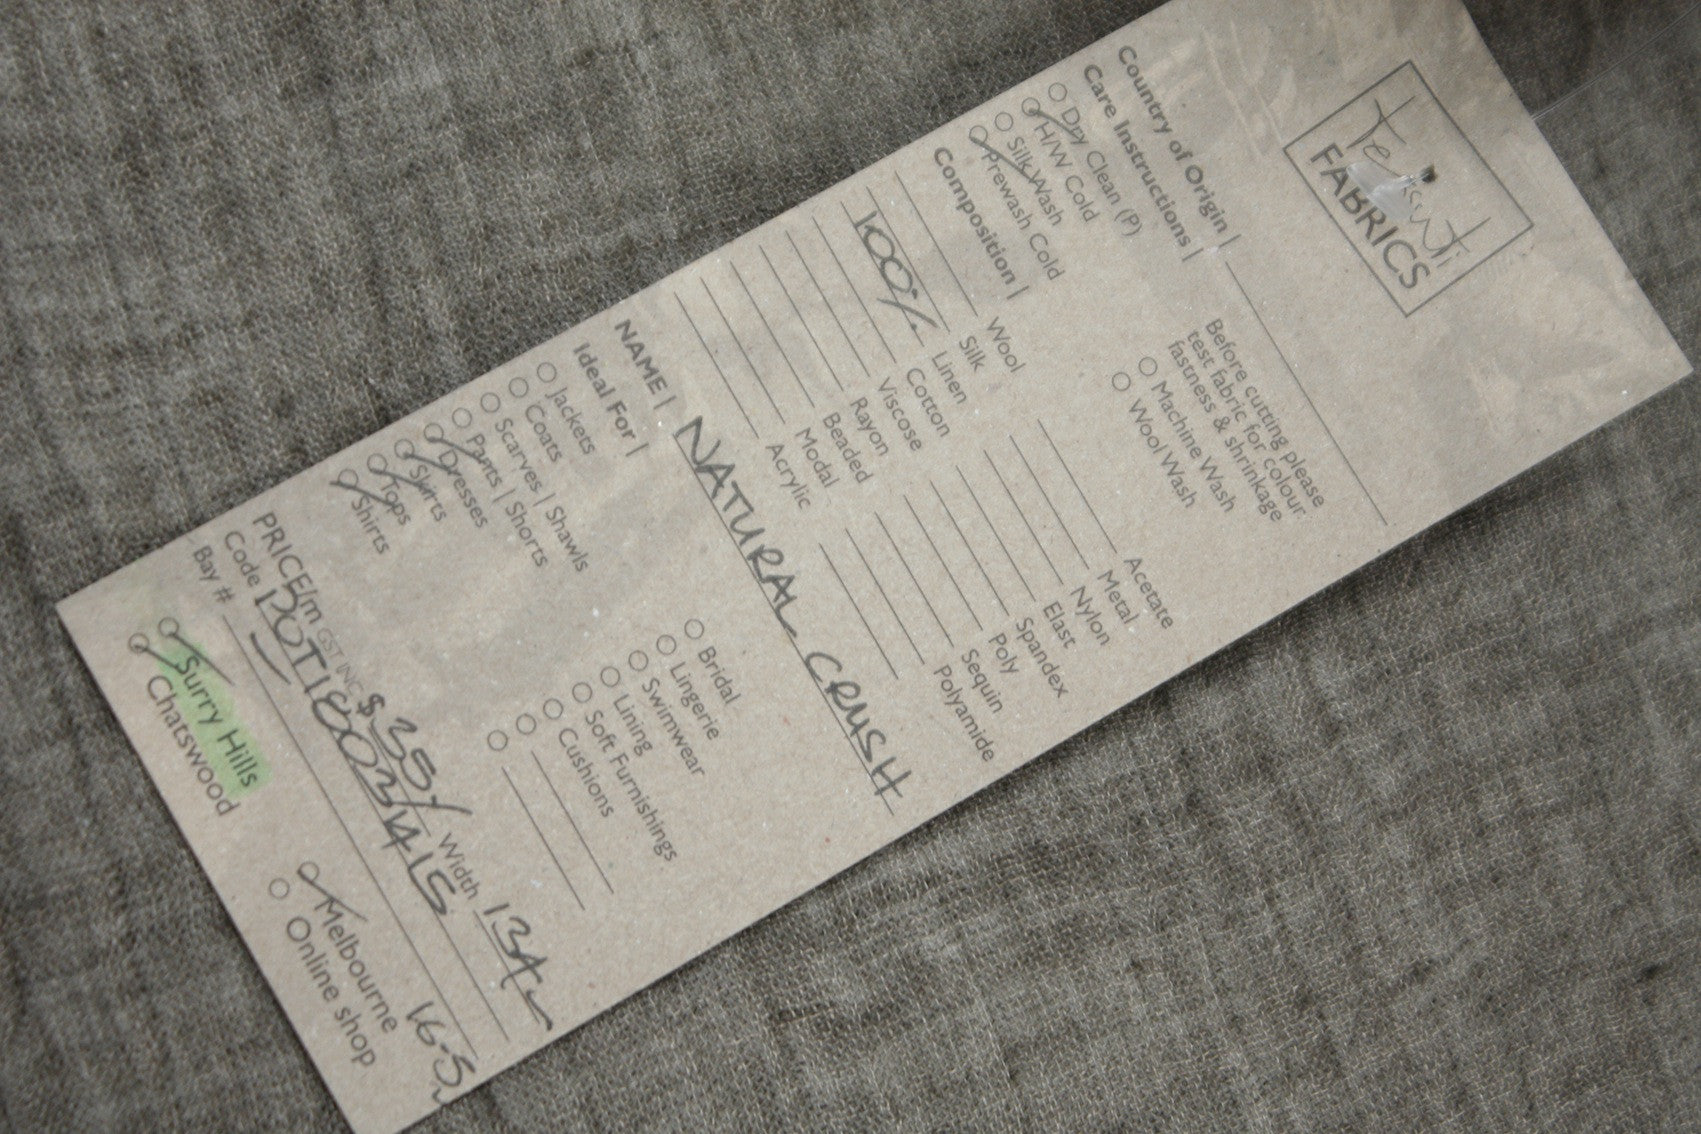 Tessuti
FABRICS
Before cutting please
test fabric for colour
fastness & shrinkage
Country of Origin |
Care Instructions |
Dry Clean (P)
H/W Cold
Silk Wash
Prewash Cold
Machine Wash
Wool Wash
Composition |
Wool
Silk
100% Linen
Cotton
Viscose
Rayon
Beaded
Modal
Acrylic
Acetate
Metal
Nylon
Elast
Spandex
Poly
Sequin
Polyamide
NAME | NATURAL CRUSH
Ideal For |
Jackets
Coats
Scarves | Shawls
Pants | Shorts
Dresses
Skirts
Tops
Shirts
Bridal
Lingerie
Swimwear
Lining
Soft Furnishings
Cushions
PRICE/m GST INC $ 35/ Width 134
Code
Bay #
Surry Hills
Chatswood
Melbourne
Online shop